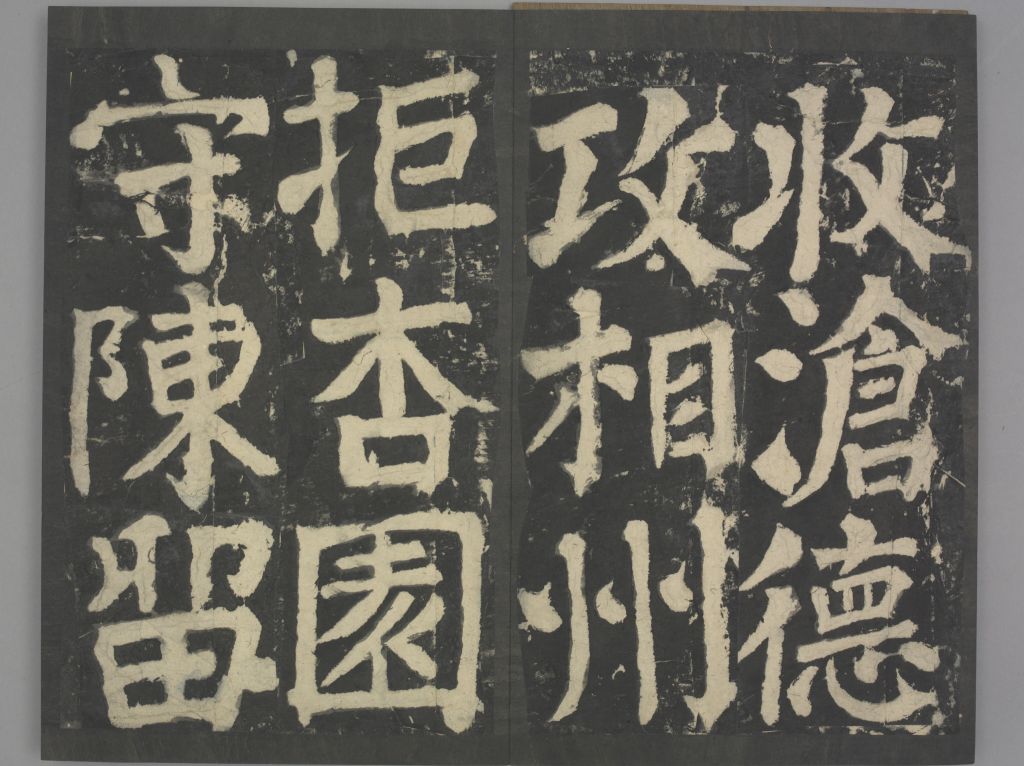 收滄德
攻相州
拒杏園
守陳留